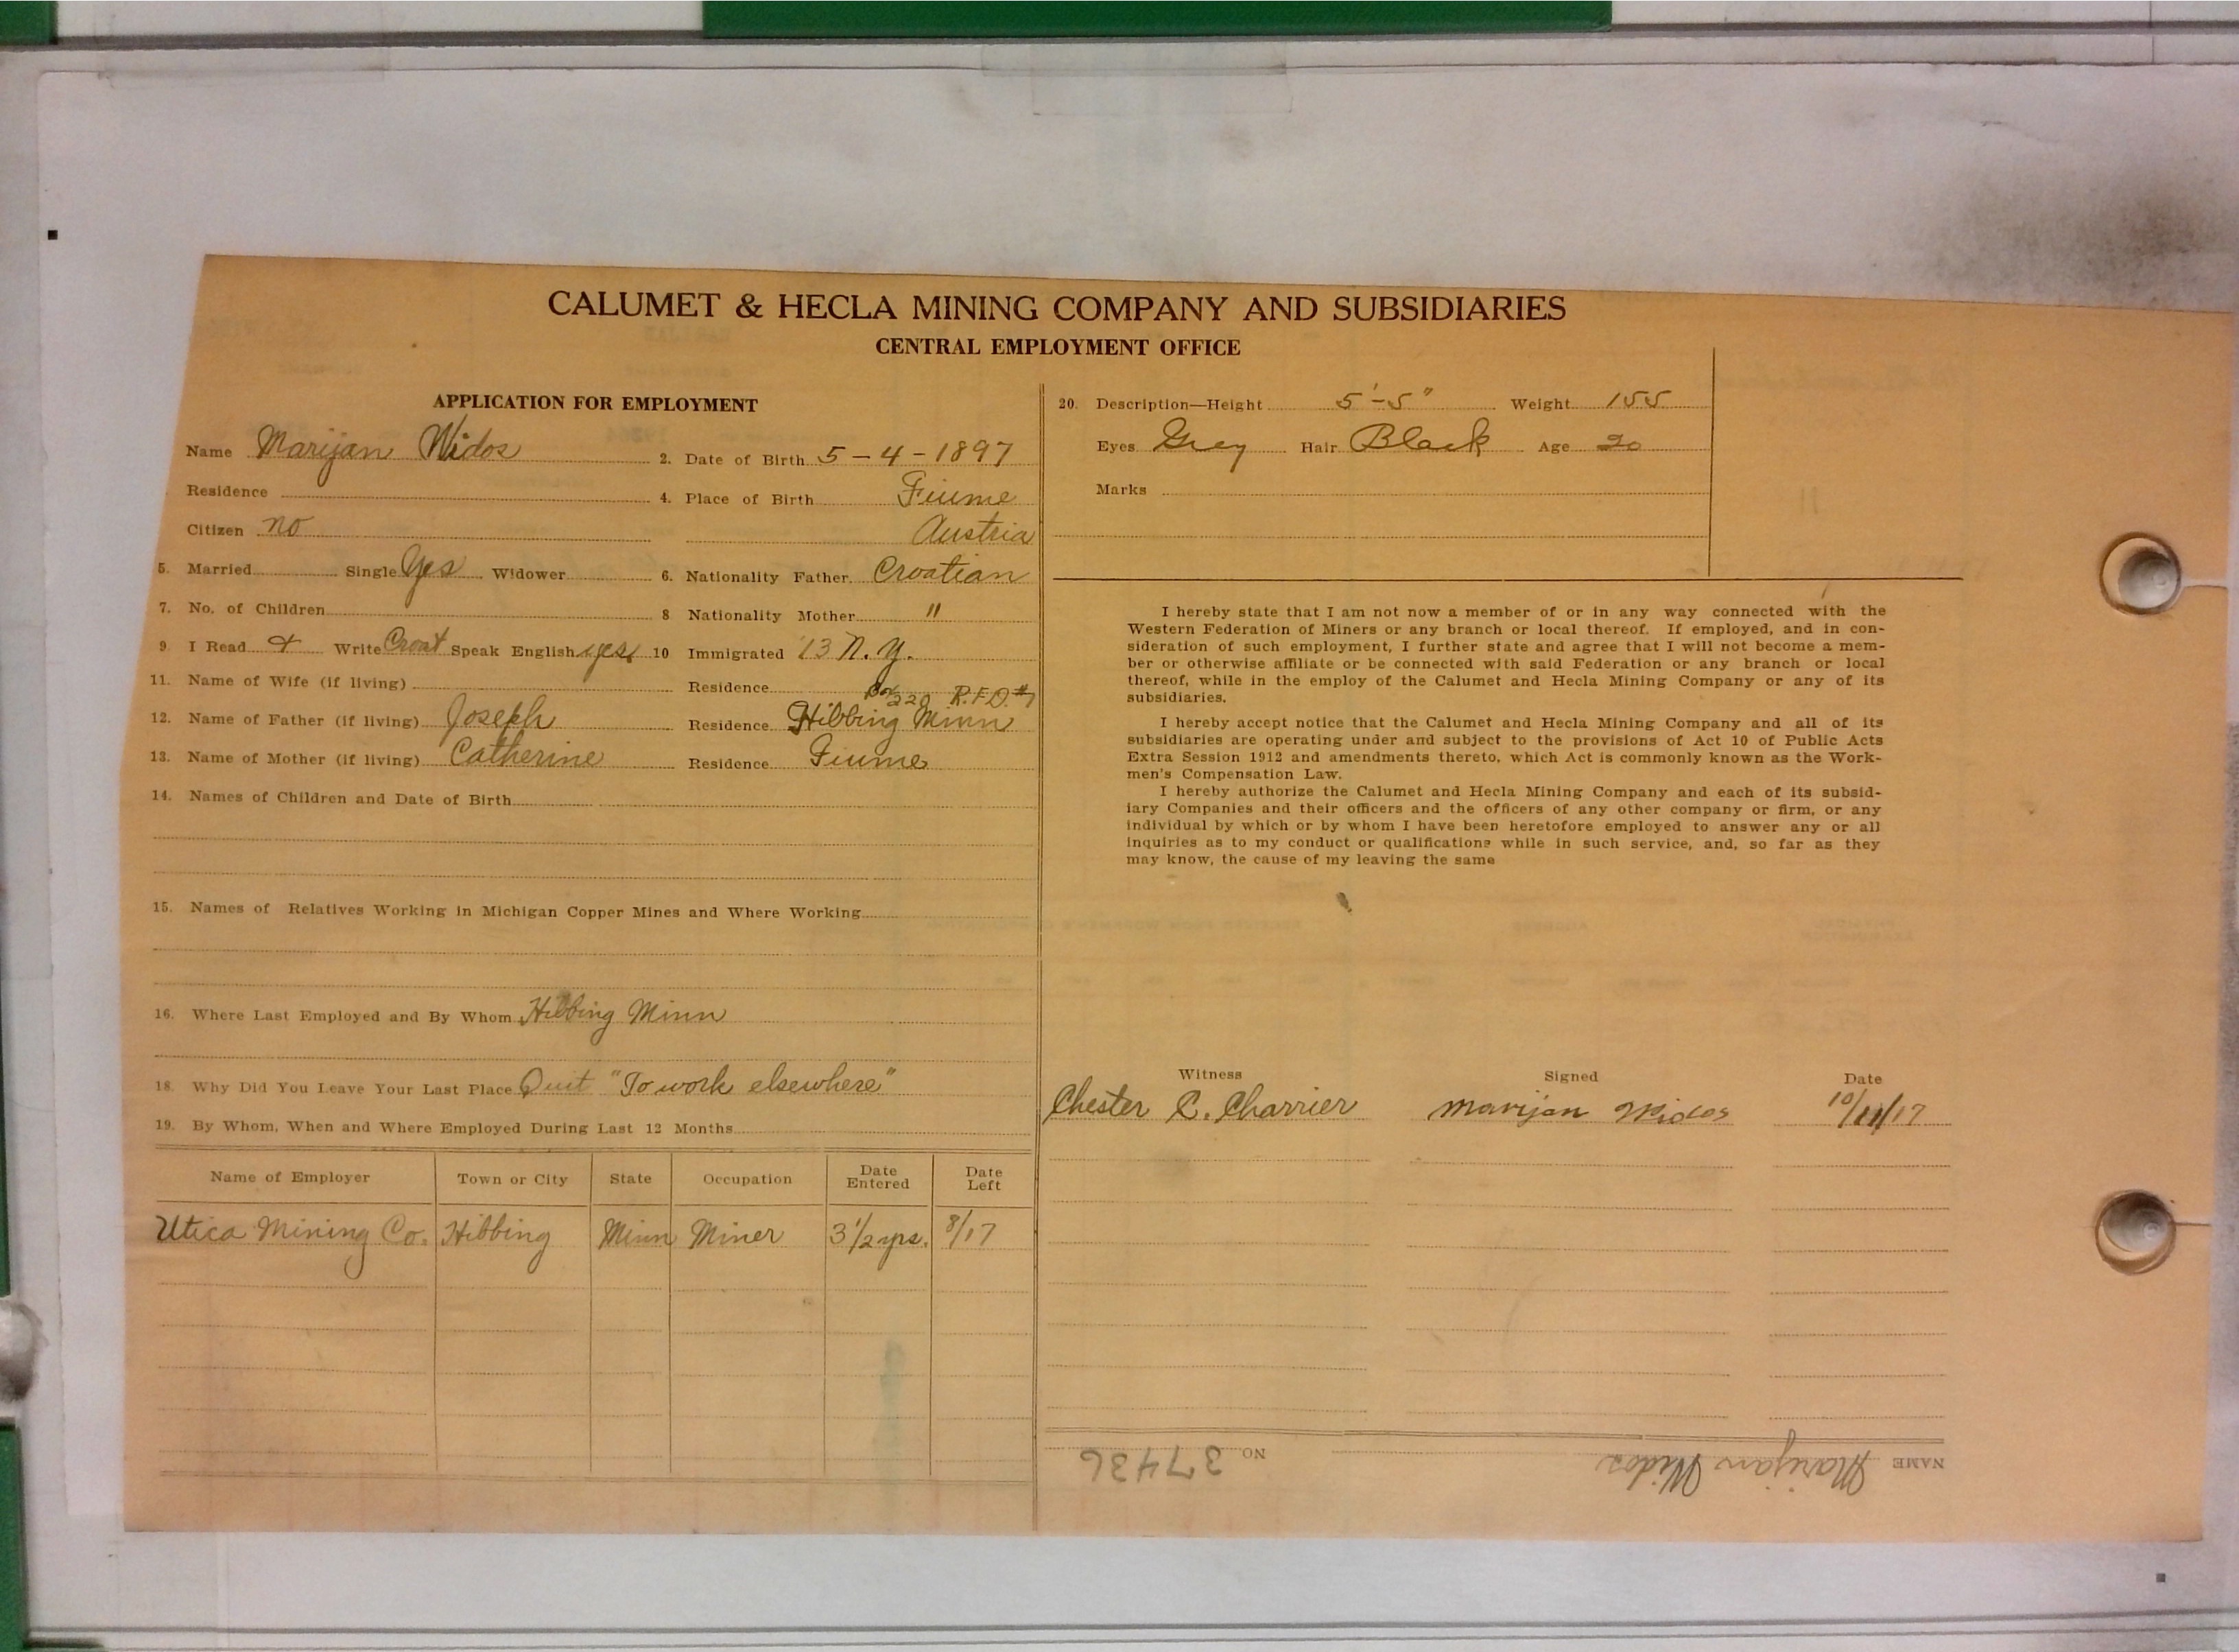 CALUMET & HECLA MINING COMPANY AND SUBSIDIARIES
CENTRAL EMPLOYMENT OFFICE
APPLICATION FOR EMPLOYMENT
Name Marijan Widos 2. Date of Birth 5 - 4 - 1897
Residence 4. Place of Birth Fiume
Citizen no Austria
5. Married Single Yes Widower 6. Nationality Father Croatian
7. No. of Children 8 Nationality Mother "
9. I Read & Write Croat Speak English yes 10 Immigrated '13 N. Y.
11. Name of Wife (if living) Residence
Box 220 R.F.D. #1
12. Name of Father (if living) Joseph Residence Hibbing Minn
13. Name of Mother (if living) Catherine Residence Fiume
14. Names of Children and Date of Birth
15. Names of Relatives Working in Michigan Copper Mines and Where Working
16. Where Last Employed and By Whom Hibbing Minn
18. Why Did You Leave Your Last Place Quit "To work elsewhere"
19. By Whom, When and Where Employed During Last 12 Months
Name of Employer Town or City State Occupation Date Entered Date Left
Utica Mining Co. Hibbing Minn Miner 3 1/2 yrs. 8/17
20. Description—Height 5'-5" Weight 155
Eyes Grey Hair Black Age 20
Marks
I hereby state that I am not now a member of or in any way connected with the
Western Federation of Miners or any branch or local thereof. If employed, and in con-
sideration of such employment, I further state and agree that I will not become a mem-
ber or otherwise affiliate or be connected with said Federation or any branch or local
thereof, while in the employ of the Calumet and Hecla Mining Company or any of its
subsidiaries.
I hereby accept notice that the Calumet and Hecla Mining Company and all of its
subsidiaries are operating under and subject to the provisions of Act 10 of Public Acts
Extra Session 1912 and amendments thereto, which Act is commonly known as the Work-
men's Compensation Law.
I hereby authorize the Calumet and Hecla Mining Company and each of its subsid-
iary Companies and their officers and the officers of any other company or firm, or any
individual by which or by whom I have been heretofore employed to answer any or all
inquiries as to my conduct or qualifications while in such service, and, so far as they
may know, the cause of my leaving the same
Witness Signed Date
Chester C. Charrier Marijan Widos 10/11/17
NAME Marijan Widos NO 37436